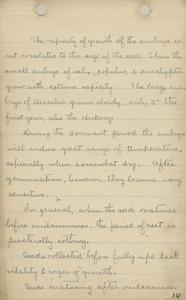 The rapidity of growth of the embryo is
not correlated to the size of the seed. Thus the
small embryo of salix, populus, & eucalyptus
grow with extreme rapidity. The large em-
bryo of Aesculus grows slowly, only 3" the
first year, also the hickory.
During the dormant period the embryo
will endure great range of temperature,
especially when somewhat dry. After
germination, however, they become very
sensitive.
In general, when the seed matures
before midsummer, the period of rest is
practically nothing.
Seeds collected before fully ripe lack
vitality & vigor of growth.
Seeds maturing after midsummer